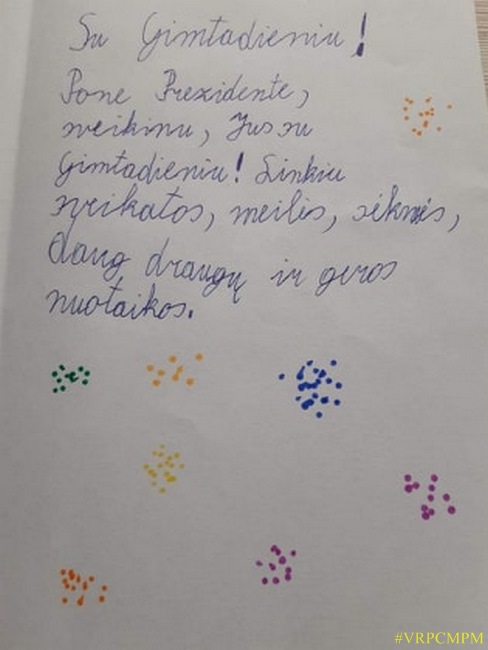 Su Gimtadieniu!
Pone Prezidente,
sveikinu, Jus su
Gimtadieniu! Linkiu
sveikatos, meilės, sėkmės,
daug draugų ir geros
nuotaikos.
#VRPCMPM